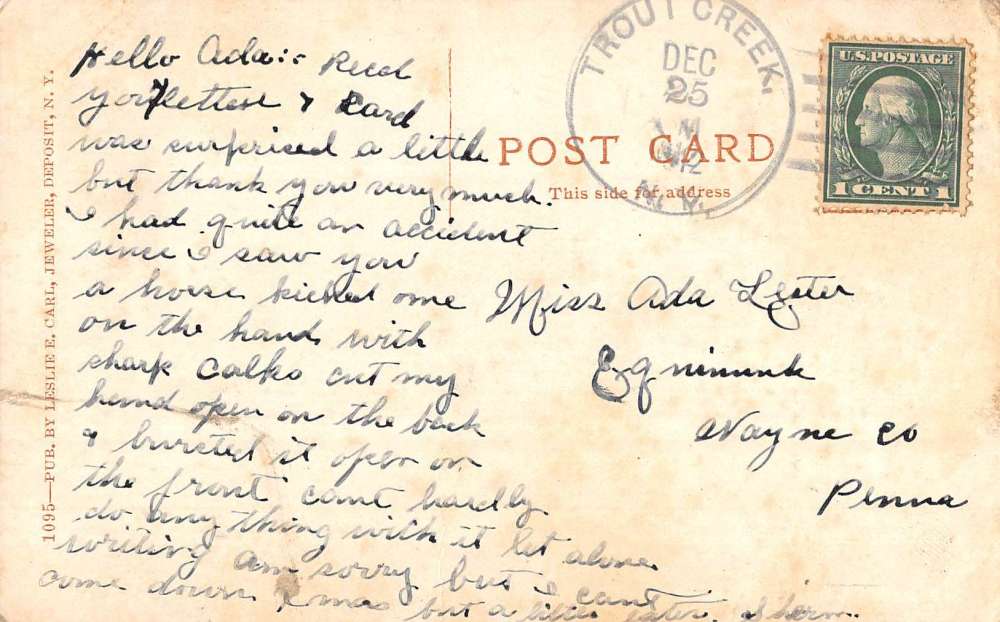 Hello Ada:- Recd
your letter & Card
was surprised a little
but thank you very much.
I had quite an accident
since I saw you
a horse kicked me
on the hand with
sharp Calks cut my
hand open on the back
& bursted it open on
the front cant hardly
do any thing with it let alone
writing am sorry but I cant
come down Xmas but a little later. Sherm.
1095—PUB. BY LESLIE E. CARL, JEWELER, DEPOSIT, N. Y.
POST CARD
This side for address
TROUT CREEK.
DEC
25
M
N. Y.
U.S. POSTAGE
1 CENT 1
Miss Ada Lester
Equinunk
Wayne Co
Penna